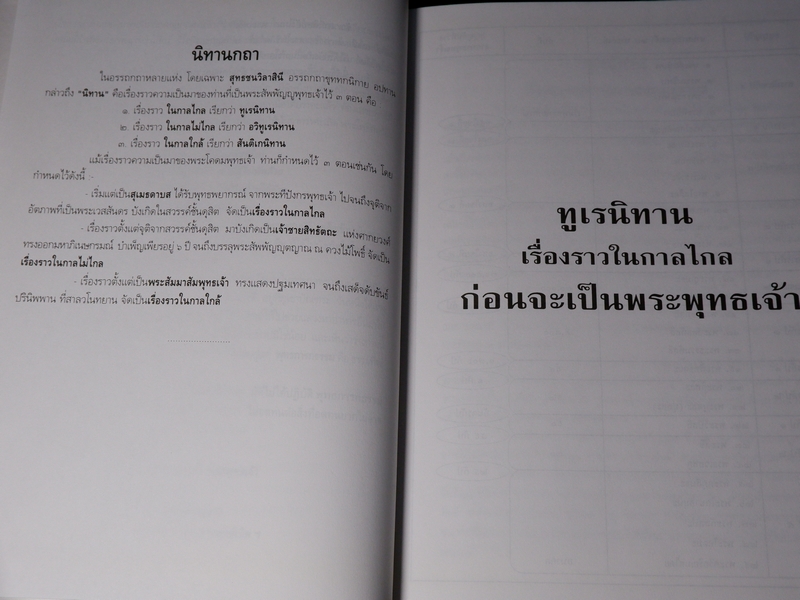 นิทานกถา
ในอรรถกถาหลายแห่ง โดยเฉพาะ สุทธชนวิลาสินี อรรถกถาขุททกนิกาย อปทาน
กล่าวถึง "นิทาน" คือเรื่องราวความเป็นมาของท่านที่เป็นพระสัพพัญญูพุทธเจ้าไว้ ๓ ตอน คือ
๑. เรื่องราว ในกาลไกล เรียกว่า ทูเรนิทาน
๒. เรื่องราว ในกาลไม่ไกล เรียกว่า อวิทูเรนิทาน
๓. เรื่องราว ในกาลใกล้ เรียกว่า สันติเกนิทาน
แม้เรื่องราวความเป็นมาของพระโคดมพุทธเจ้า ท่านก็กำหนดไว้ ๓ ตอนเช่นกัน โดย
กำหนดไว้ดังนี้ -
- เริ่มแต่เป็นสุเมธดาบส ได้รับพุทธพยากรณ์ จากพระทีปังกรพุทธเจ้า ไปจนถึงจุติจาก
อัตภาพที่เป็นพระเวสสันดร บังเกิดในสวรรค์ชั้นดุสิต จัดเป็นเรื่องราวในกาลไกล
- เรื่องราวตั้งแต่จุติจากสวรรค์ชั้นดุสิต มาบังเกิดเป็นเจ้าชายสิทธัตถะ แห่งศากยวงศ์
ทรงออกมหาภิเนษกรมณ์ บำเพ็ญเพียรอยู่ ๖ ปี จนถึงบรรลุพระสัพพัญญุตญาณ ณ ควงไม้โพธิ์ จัดเป็น
เรื่องราวในกาลไม่ไกล
- เรื่องราวตั้งแต่เป็นพระสัมมาสัมพุทธเจ้า ทรงแสดงปฐมเทศนา จนถึงเสด็จดับขันธ์
ปรินิพพาน ที่สาลวโนทยาน จัดเป็นเรื่องราวในกาลใกล้
......................
ทูเรนิทาน
เรื่องราวในกาลไกล
ก่อนจะเป็นพระพุทธเจ้า